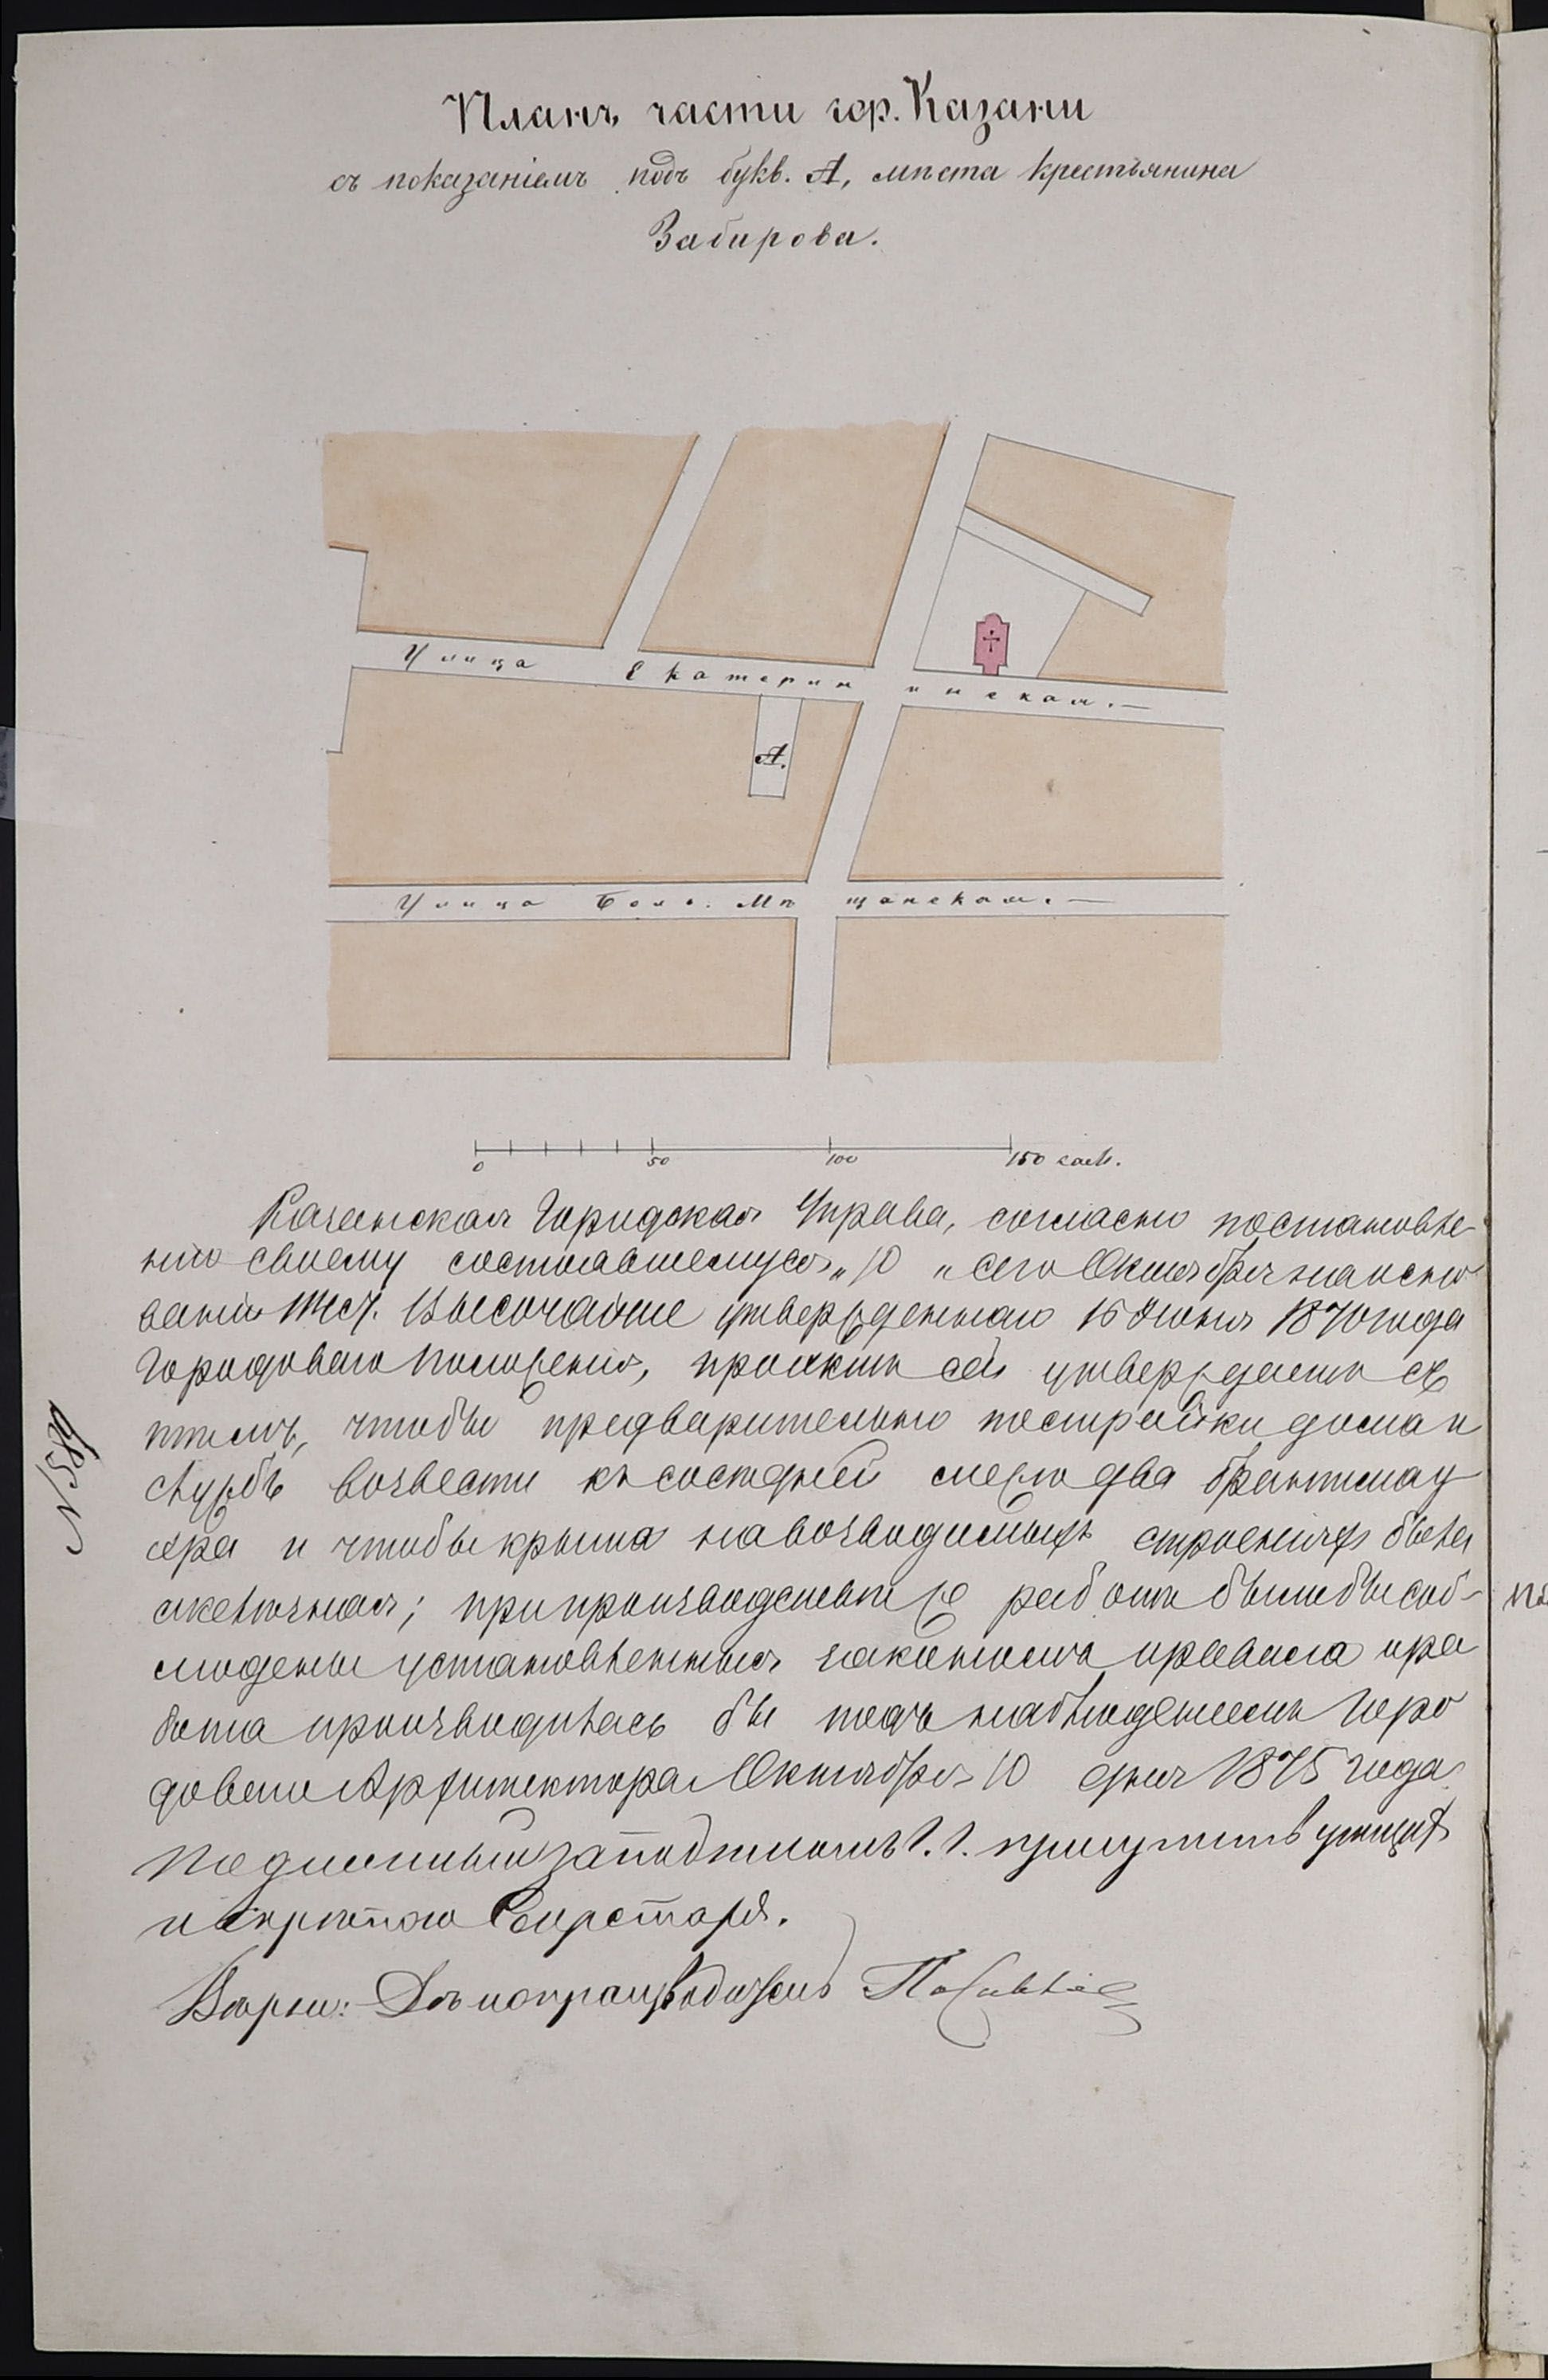 Планъ части гор. Казани
съ показаніемъ подъ букв. А, мѣста крестьянина
Забирова.
Улица Екатерининская.
А.
Улица Боль. Мѣщанская.
0 50 100 150 саж.
Казанская Городская Управа, согласно постановле-
нію своему состоявшемуся „10„ сего Октября на осно
ваніи 114 ст. Высочайше утвержденнаго 16 Іюня 1870 года
Городоваго Положенія, проэктъ сей утверждаетъ съ
тѣмъ, чтобы предварительно постройки дома и
службъ возвести къ сосѣдней межѣ два брантмау
ера и чтобы крыша на возводимыхъ строеніяхъ была
желѣзная; при производствѣ же работъ были бы соб-
людены установленныя закономъ правила и ра
бота производилась бы подъ наблюденіемъ Горо
доваго Архитектора Октября 10 дня 1875 года
Подлинный за подписомъ Г. Г. присутствующихъ
и скрѣпою Секретаря.
Вѣрно: Дѣлопроизводитель
№ 589